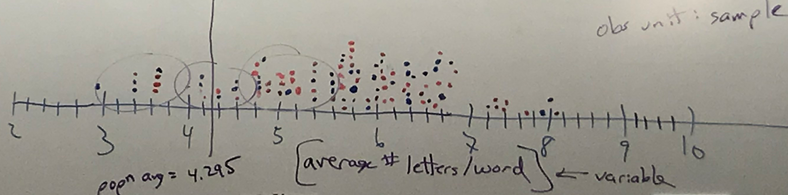 obs unit: sample
2 3 4 5 6 7 8 9 10
popⁿ avg = 4.295
[average # letters/word] ← variable